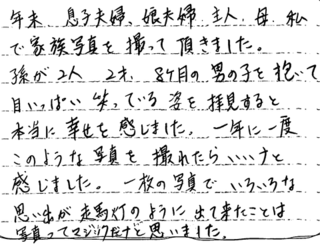 年末、息子夫婦、娘夫婦、主人、母、私
で家族写真を撮って頂きました。
孫が2人 2才、8ヶ月の男の子を抱いて
目いっぱい笑っている姿を拝見すると
本当に幸せを感じました。一年に一度
このような写真を撮れたらいいナと
感じました。一枚の写真でいろいろな
思い出が走馬灯のように出て来たことは
写真ってマジックだナと思いました。